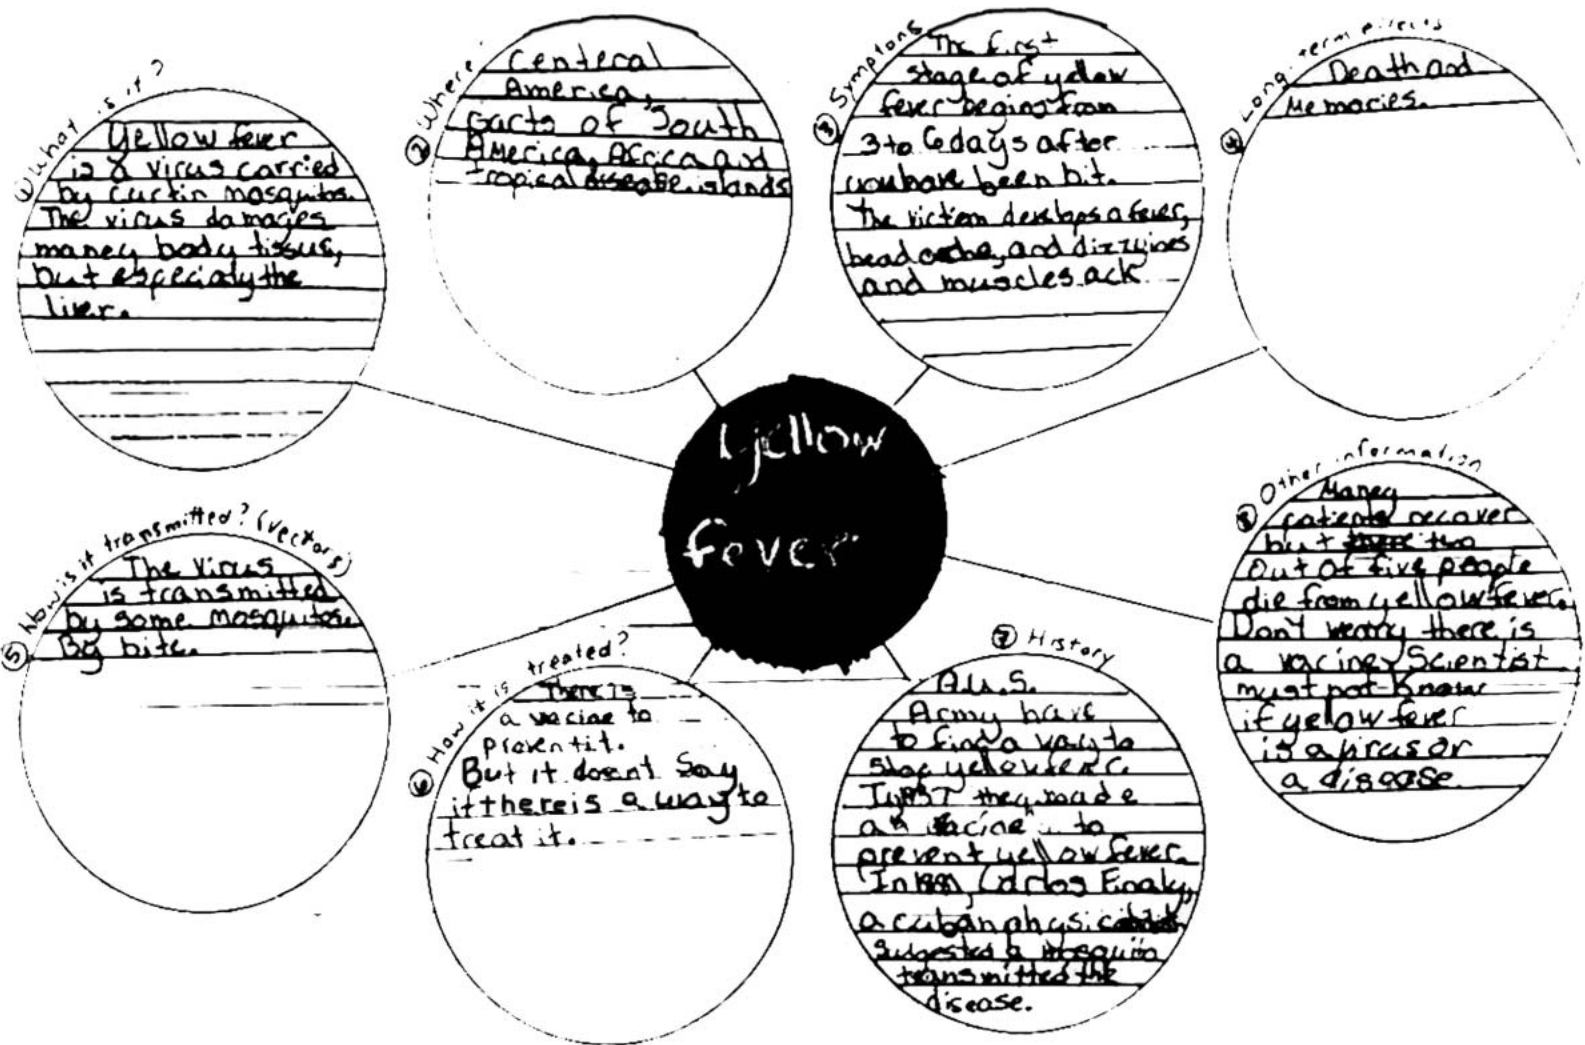 ① What is it?
Yellow fever
is a virus carried
by curtin mosquitos.
The virus damages
maney body tissus,
but especialy the
liver.
② Where?
Centeral
America,
parts of South
America, Africa and
tropical islands
③ Symptons
The first
stage of yellow
fever begins from
3 to 6 days after
you have been bit.
The victiem develops a fever,
headache, and dizzyines
and muscles ack
④ Long-term effects
Death and
Memories.
Yellow
fever
⑤ How is it transmitted? (vectors)
The Virus
is transmitted
by some mosquitos.
By bite.
⑥ How it is treated?
There is
a vacine to
preventit.
But it doesnt say
if there is a way to
treat it.
⑦ History
A U.S.
Army have
to find a way to
stop yellow fever.
In 1937 they made
a "vacine" to
prevent yellow fever.
In 1881, Carlos Finaly,
a cuban
sudgested a mosquito
transmitted the
disease.
⑧ Other information
Maney
patients recover
but two
out of five people
die from yellow fever.
Don't worry there is
a vacine, Scientist
must not know
if yellow fever
is a virus or
a disease.